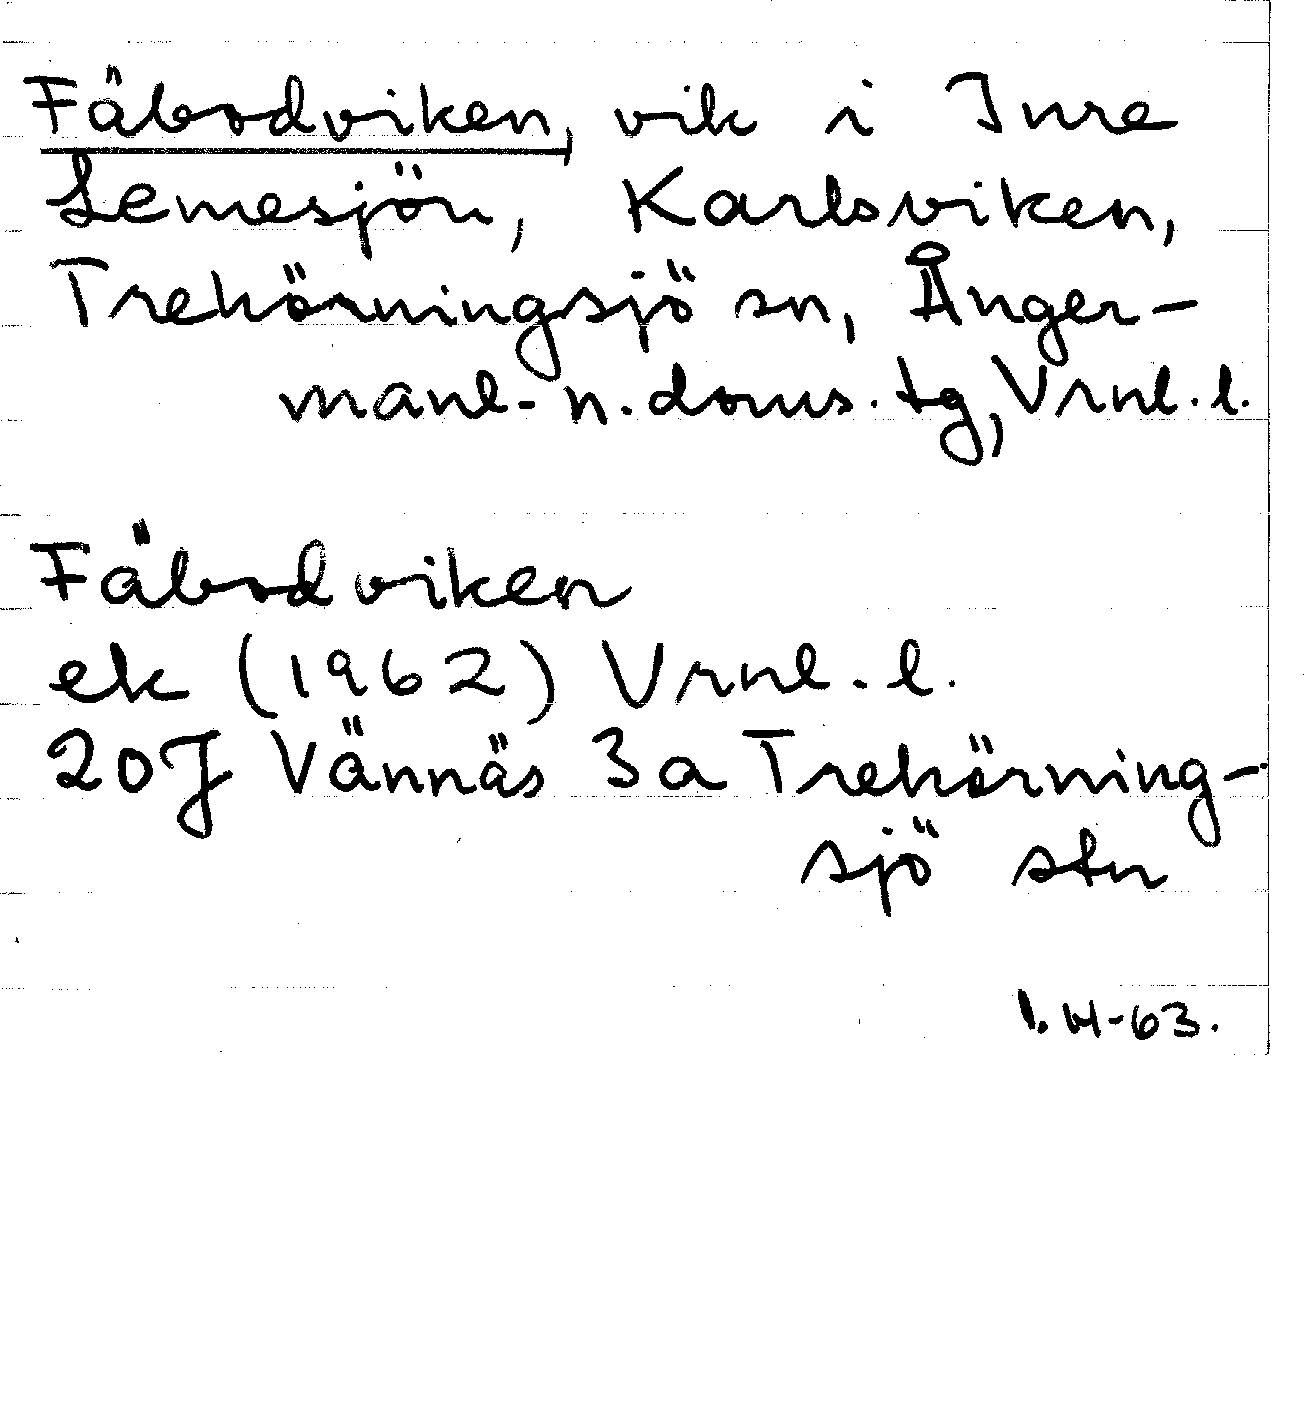 Fäbodviken, vik i Inre
Lemesjön, Karlsviken,
Trehörningsjö sn, Ånger-
manl. n. doms. tg, Vrnl. l.
Fäbodviken
ek (1962) Vrnl. l.
20J Vännäs 3a Trehörning-
sjö stn
-63.